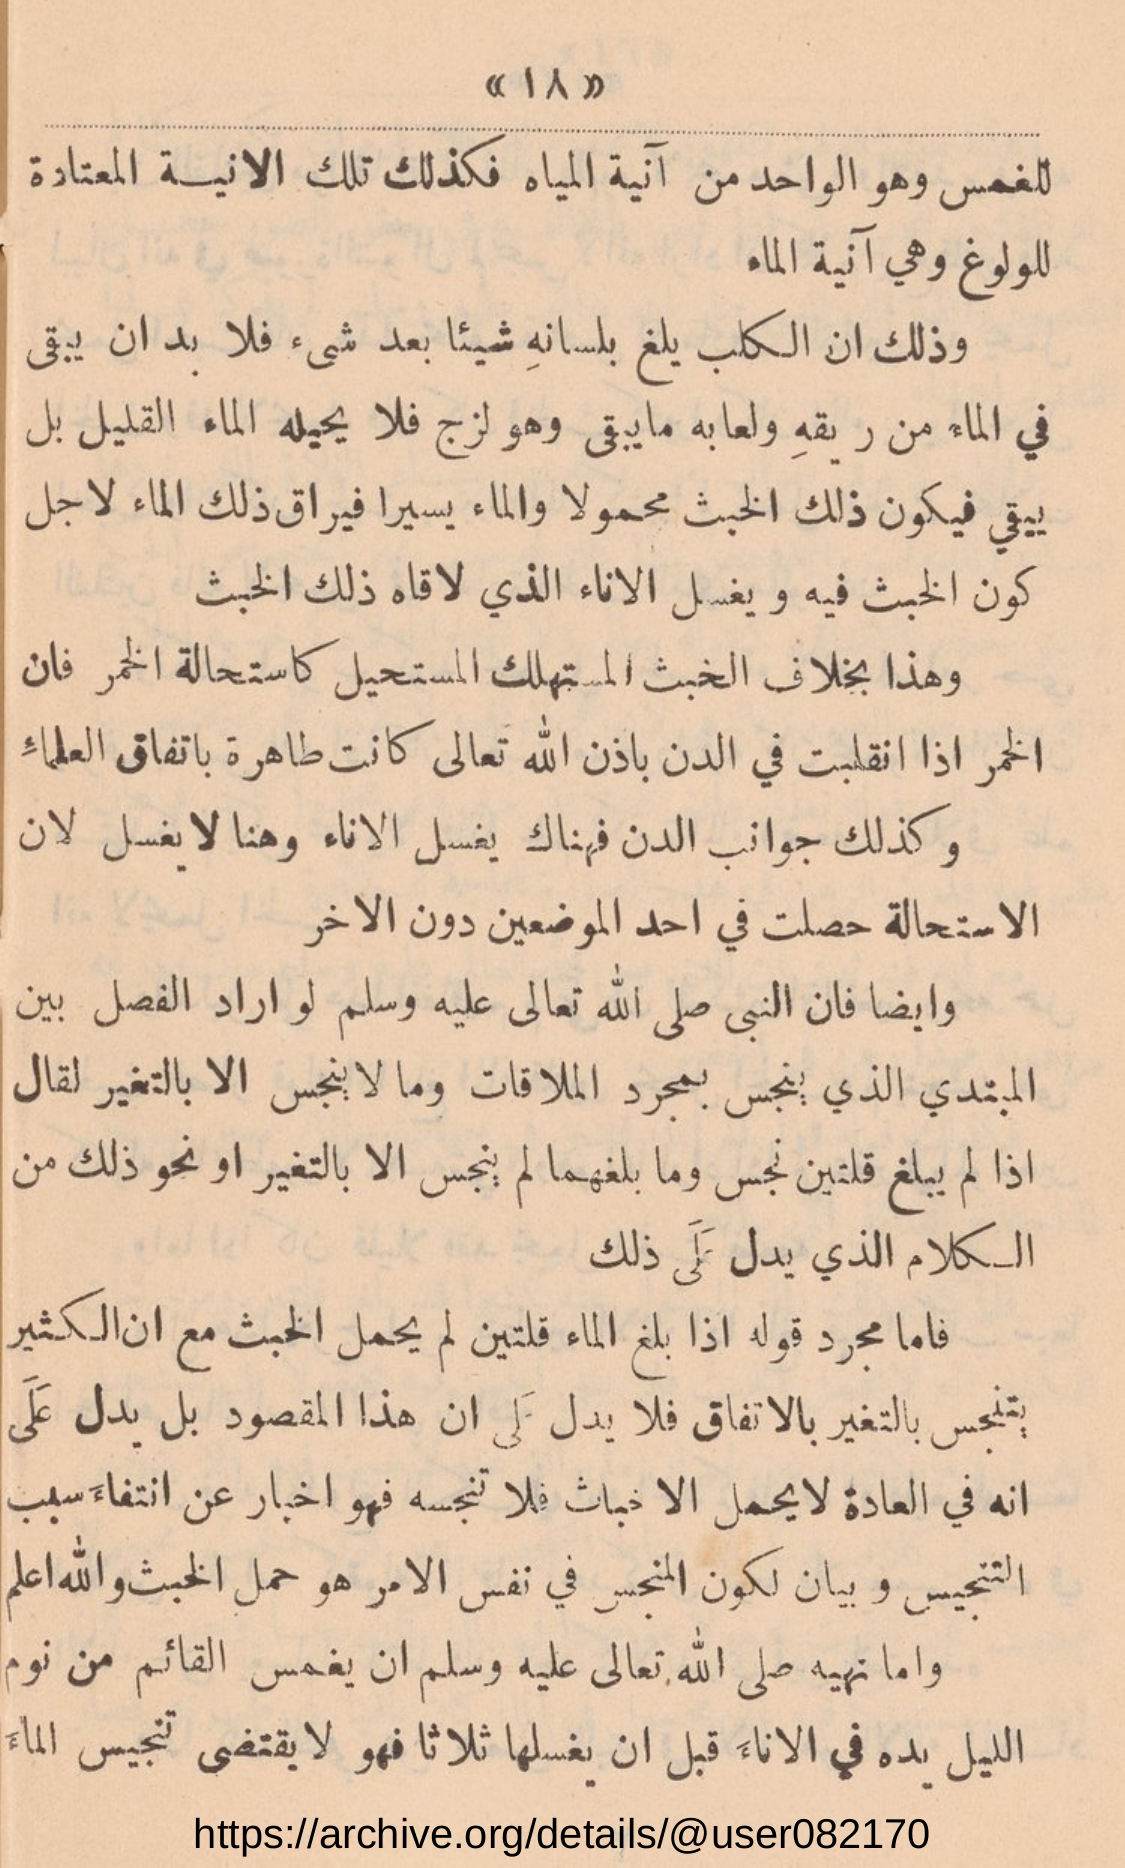 «١٨»
للغمس وهو الواحد من آنية المياه فكذلك تلك الانيـة المعتادة
للولوغ وهي آنية الماء
وذلك ان الـكلب يلغ بلسانهِ شيئا بعد شىء فلا بد ان يبقى
في الماء من ريقهِ ولعابه مايبقى وهو لزج فلا يحيله الماء القليل بل
يبقي فيكون ذلك الخبث محمولا والماء يسيرا فيراق ذلك الماء لاجل
كون الخبث فيه ويغسل الاناء الذي لاقاه ذلك الخبث
وهذا بخلاف الخبث المستهلك المستحيل كاستحالة الخمر فان
الخمر اذا انقلبت في الدن باذن الله تعالى كانت طاهرة باتفاق العلماءِ
وكذلك جوانب الدن فهناك يغسل الاناء وهنا لايغسل لان
الاستحالة حصلت في احد الموضعين دون الاخر
وايضا فان النبى صلى الله تعالى عليه وسلم لو اراد الفصل بين
المبتدي الذي ينجس بمجرد الملاقات وما لاينجس الا بالتغير لقال
اذا لم يبلغ قلتين نجس وما بلغهما لم ينجس الا بالتغير او نحو ذلك من
الـكلام الذي يدل عَلَى ذلك
فاما مجرد قوله اذا بلغ الماء قلتين لم يحمل الخبث مع ان الـكثير
يتنجس بالتغير بالاتفاق فلا يدل عَلَى ان هذا المقصود بل يدل عَلَى
انه في العادة لايحمل الاخباث فلا تنجسه فهو اخبار عن انتفاءَ سبب
التنجيس وبيان لكون المنجس في نفس الامر هو حمل الخبث والله اعلم
واما نهيه صلى الله تعالى عليه وسلم ان يغمس القائم من نوم
الليل يده في الاناءَ قبل ان يغسلها ثلاثا فهو لايقتضى تنجيس الماءَ
https://archive.org/details/@user082170